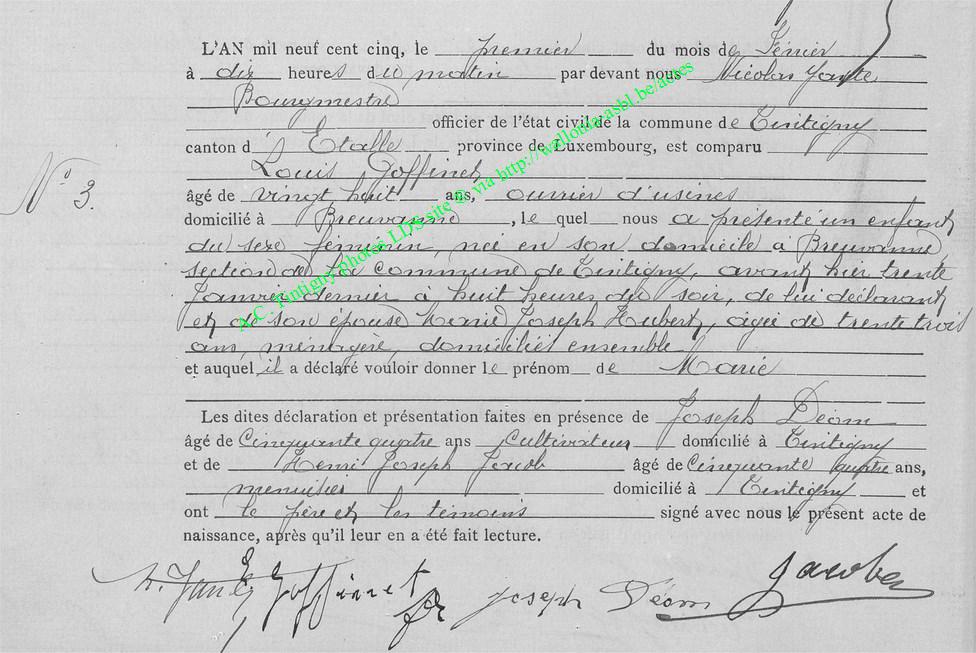 L'AN mil neuf cent cinq, le premier du mois de Février
à dix heures du matin par devant nous Nicolas
Bourgmestre
officier de l'état civil de la commune de Tintigny
canton d'Etalle province de Luxembourg, est comparu
Louis Goffinet
N° 3.
âgé de vingt huit ans, ouvrier d'usines
domicilié à Breuvanne, le quel nous a présenté un enfant
du sexe féminin, née en son domicile à Breuvanne
section de la commune de Tintigny, avant hier trente
Janvier dernier à huit heures du soir, de lui déclarant
et de son épouse Marie Joseph Hubert, âgée de trente trois
ans, ménagère, domiciliés ensemble
et auquel il a déclaré vouloir donner le prénom de Marie
Les dites déclaration et présentation faites en présence de Joseph Déom
âgé de Cinquante quatre ans Cultivateur domicilié à Tintigny
et de Henri Joseph Jacob âgé de Cinquante quatre ans,
menuisier domicilié à Tintigny et
ont le père et les témoins signé avec nous le présent acte de
naissance, après qu'il leur en a été fait lecture.
Goffinet Joseph Déom
A.C. Tintigny photos LDS site © via http://wallonia.asbl.be/actes